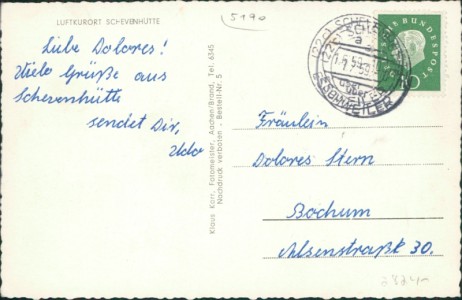 LUFTKURORT SCHEVENHÜTTE
5190
Liebe Dolores!
Viele Grüße aus
Schevenhütte
sendet Dir,
Udo
Klaus Korr, Fotomeister, Aachen/Brand, Tel. 6345
Nachdruck verboten - Bestell-Nr. 5
DEUTSCHE BUNDESPOST
10
(22c) SCHEVENHÜTTE
a
über
ESCHWEILER
Fräulein
Dolores Stern
Bochum
Alsenstraße 30.